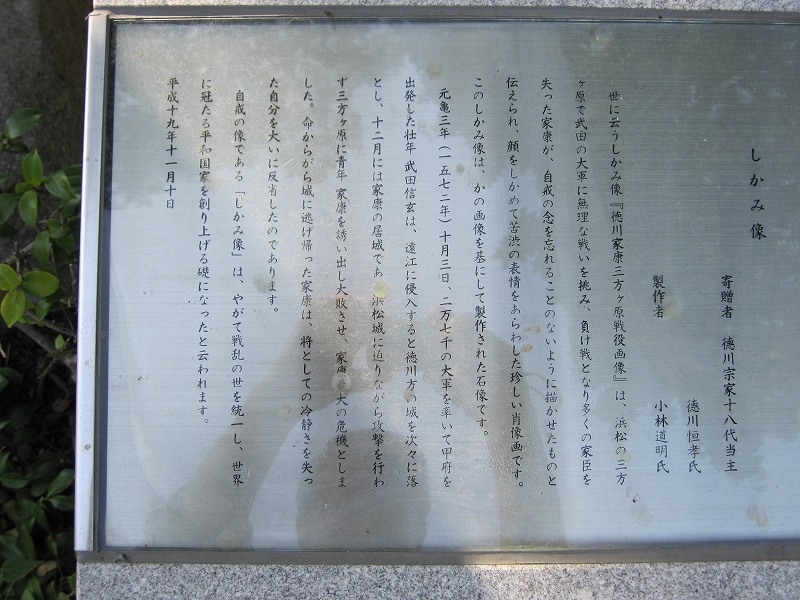 しかみ像
寄贈者 徳川宗家十八代当主
徳川恒孝氏
製作者 小林道明氏
世に云うしかみ像『徳川家康三方ヶ原戦役画像』は、浜松の三方
ヶ原で武田の大軍に無理な戦いを挑み、負け戦となり多くの家臣を
失った家康が、自戒の念を忘れることのないように描かせたものと
伝えられ、顔をしかめて苦渋の表情をあらわした珍しい肖像画です。
このしかみ像は、かの画像を基にして製作された石像です。
元亀三年（一五七二年）十月三日、二万七千の大軍を率いて甲府を
出発した壮年 武田信玄は、遠江に侵入すると徳川方の城を次々に落
とし、十二月には家康の居城であ 浜松城に迫りながら攻撃を行わ
ず三方ヶ原に青年 家康を誘い出し大敗させ、家康 大の危機としま
した。命からがら城に逃げ帰った家康は、将としての冷静さを失っ
た自分を大いに反省したのであります。
自戒の像である「しかみ像」は、やがて戦乱の世を統一し、世界
に冠たる平和国家を創り上げる礎になったと云われます。
平成十九年十一月十日